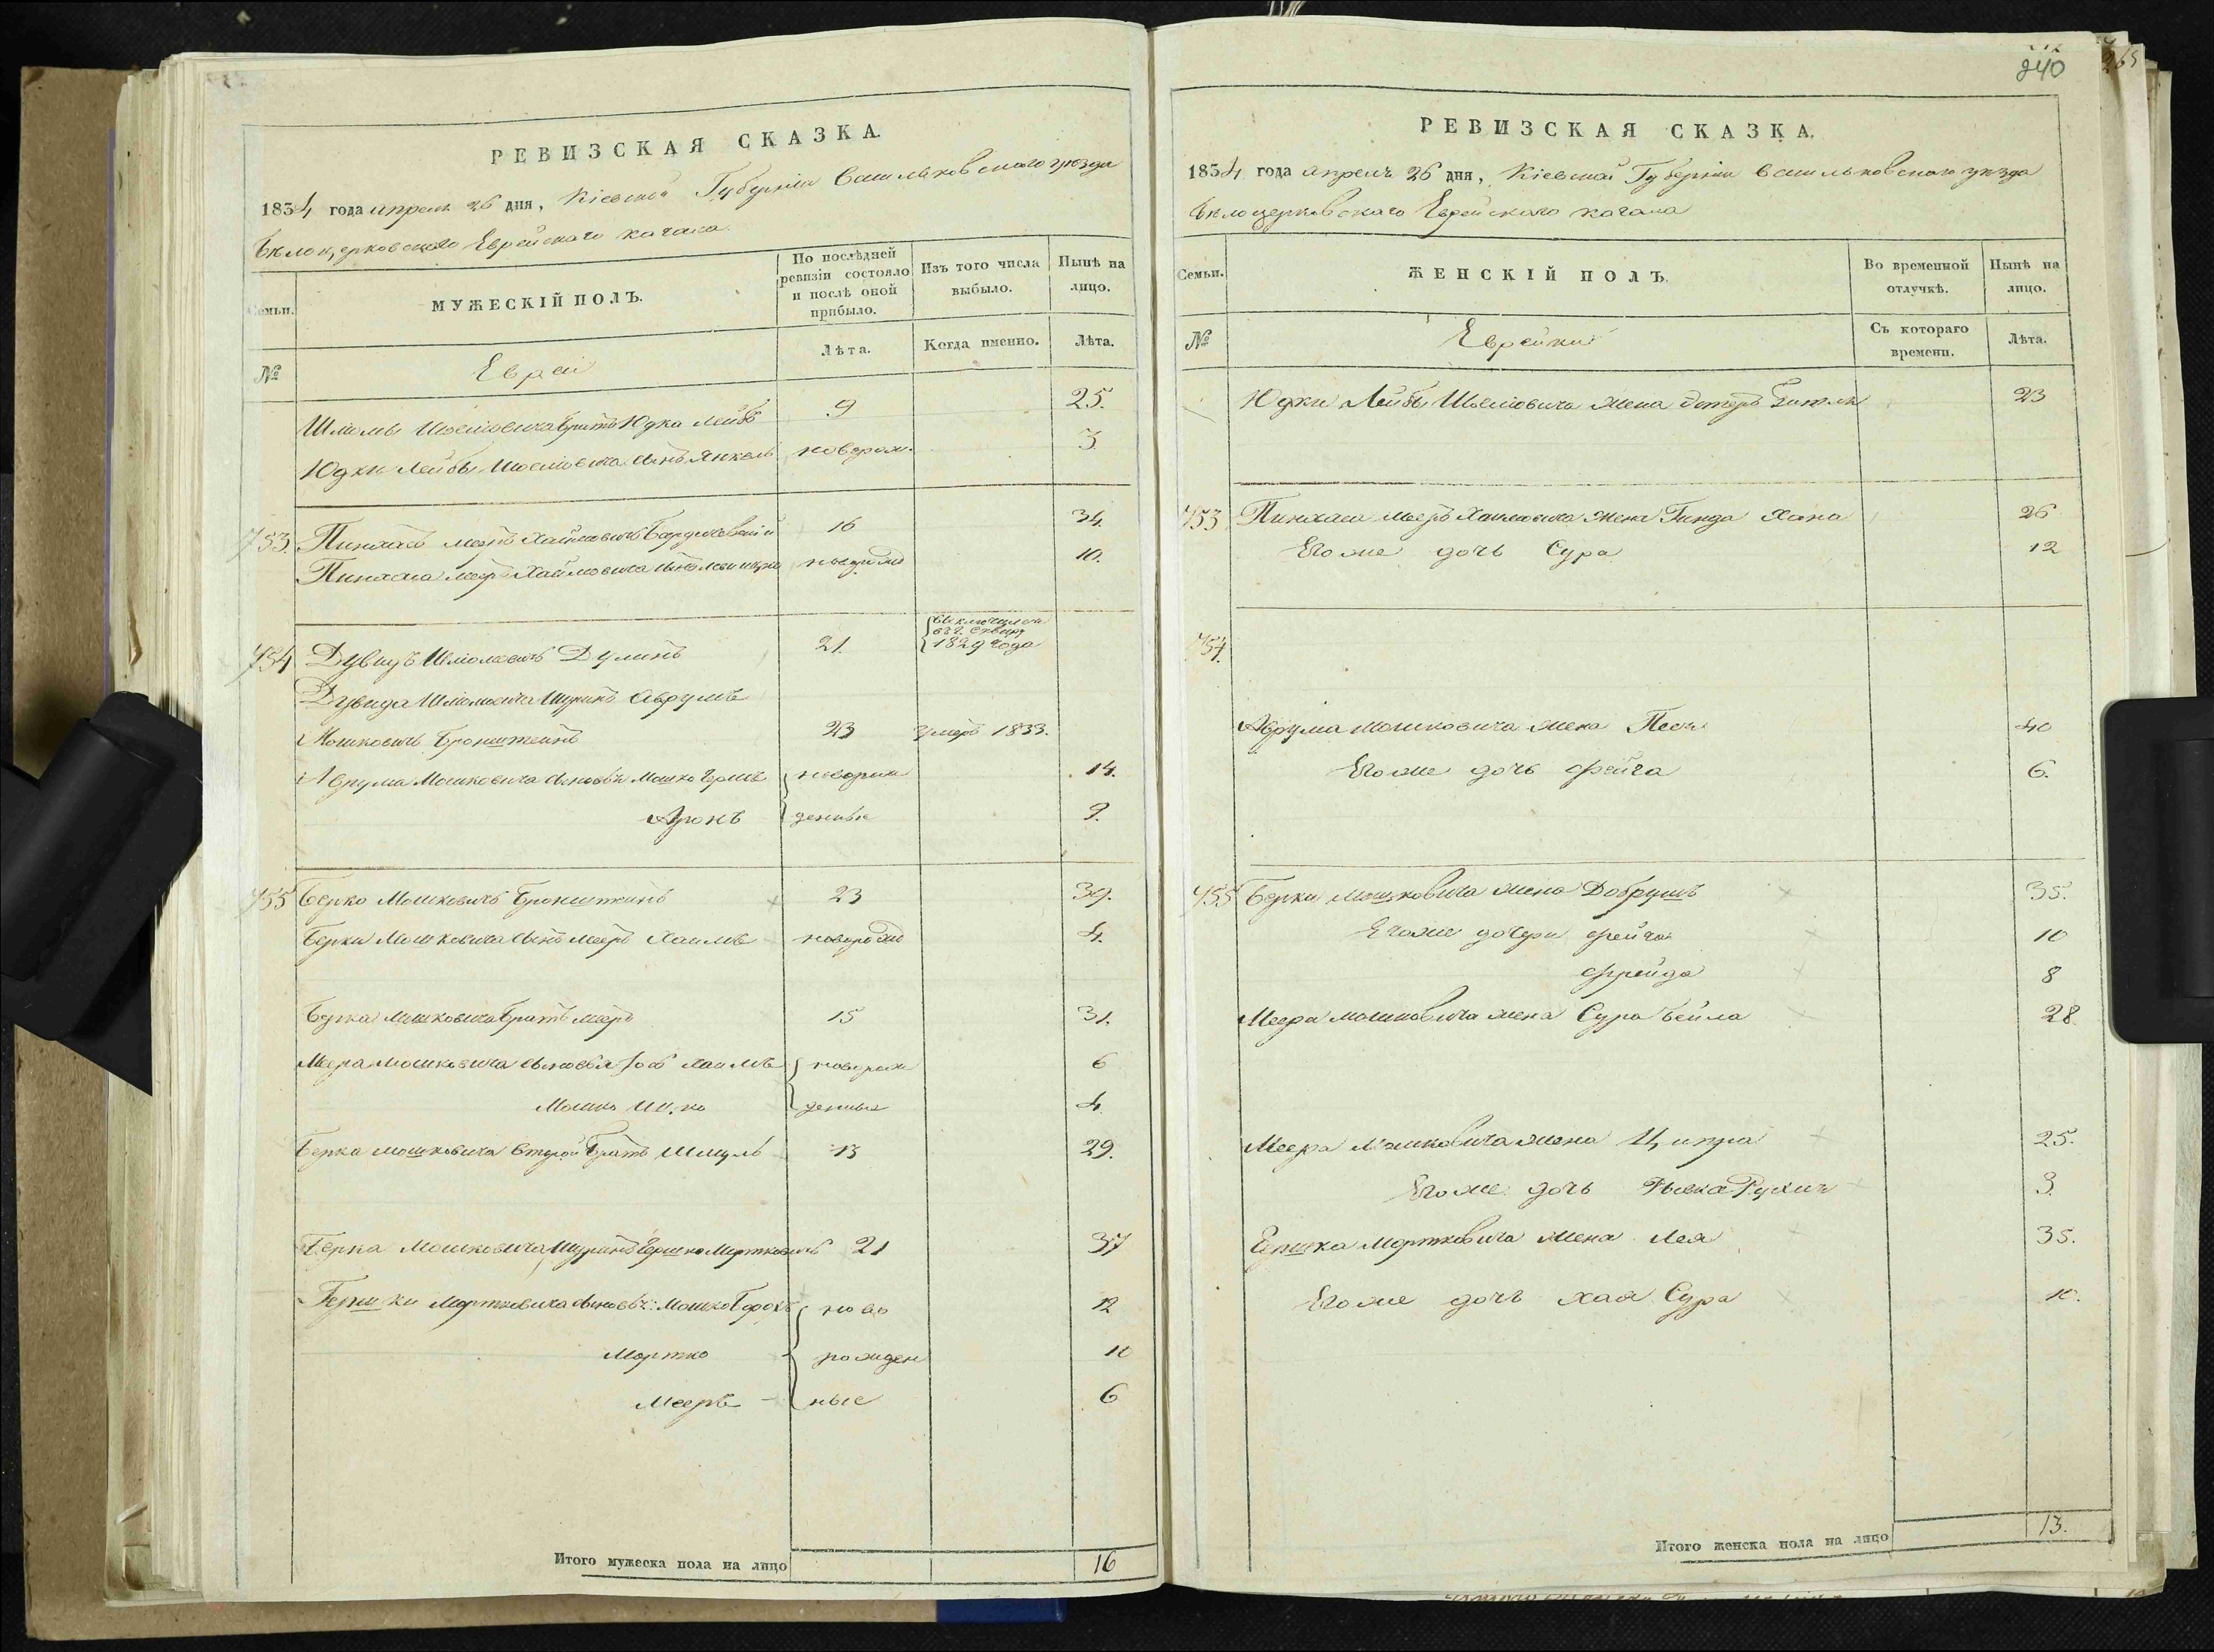 РЕВИЗСКАЯ СКАЗКА.
1834 года апреля 26 дня, Кіевской Губерніи Васильковскаго уезда
Бѣлоцерковскаго Еврейскаго кагала.
Семьи.
МУЖЕСКІЙ ПОЛЪ.
По послѣдней ревизіи состояло и послѣ оной прибыло.
Изъ того числа выбыло.
Нынѣ на лицо.
№
Евреи
Лѣта.
Когда именно.
Лѣта.
Шліомы Иосіовича братъ Юдка Лейба 9 25.
Юдки Лейбы Иосіовича сынъ Янкель новорож. 3
753. Пинхасъ Меръ Хаимовичъ Бардичевскій 16 34
Пинхаса Меера Хаймовича сынъ новорожд 10.
754 Дувидъ Шліомовичъ Дулинъ 21. выключился 1829 года
Дувида Шліомовича шуринъ Аврумъ
Мошковичъ Бронштейнъ 23 умеръ 1833.
Аврума Мошковича сыновья Мошко Гершъ новорож 14.
Аронъ денные 9.
755 Берко Мошковичъ Бронштейнъ 23 39.
Берки Мошковича сынъ Мееръ Хаимъ новорожд 4.
Берка Мошковича братъ Мееръ 15 31.
Меера Мошковича сыновья Іось Хаимъ новорож 6
Мошко денные 4
Берка Мошковича второй братъ Шмуль 13 29.
Берка Мошковича шуринъ Гершко Мортковичъ 21 37
Гершки Мортковича сыновья: Мошко ново 12
Мортко рожден 10
Мееръ ные 6
Итого мужеска пола на лицо 16
240
265
РЕВИЗСКАЯ СКАЗКА.
1834 года апреля 26 дня, Кіевской Губерніи Васильковскаго уезда
Бѣлоцерковскаго Еврейскаго кагала
Семьи.
ЖЕНСКІЙ ПОЛЪ.
Во временной отлучкѣ.
Нынѣ на лицо.
№
Еврейки
Съ котораго времени.
Лѣта.
Юдки Лейбы Иосіовича жена 23
753 Пинхаса Меера Хаимовича жена Гинда Хана 26
Его же дочь Сура 12
754.
Аврума Мошковича жена Песя 40
Его же дочь Фейга 6.
755 Берки Мошковича жена Добрушъ 35.
Его же дочери Фейга 10
Фрейда 8
Меера Мошковича жена Сура Бейла 28
Меера Мошковича жена Ципра 25.
Его же дочь Рухля 3
Гершка Мортковича жена Лея 35.
Его же дочь Хая Сура 10.
Итого женска пола на лицо 13.